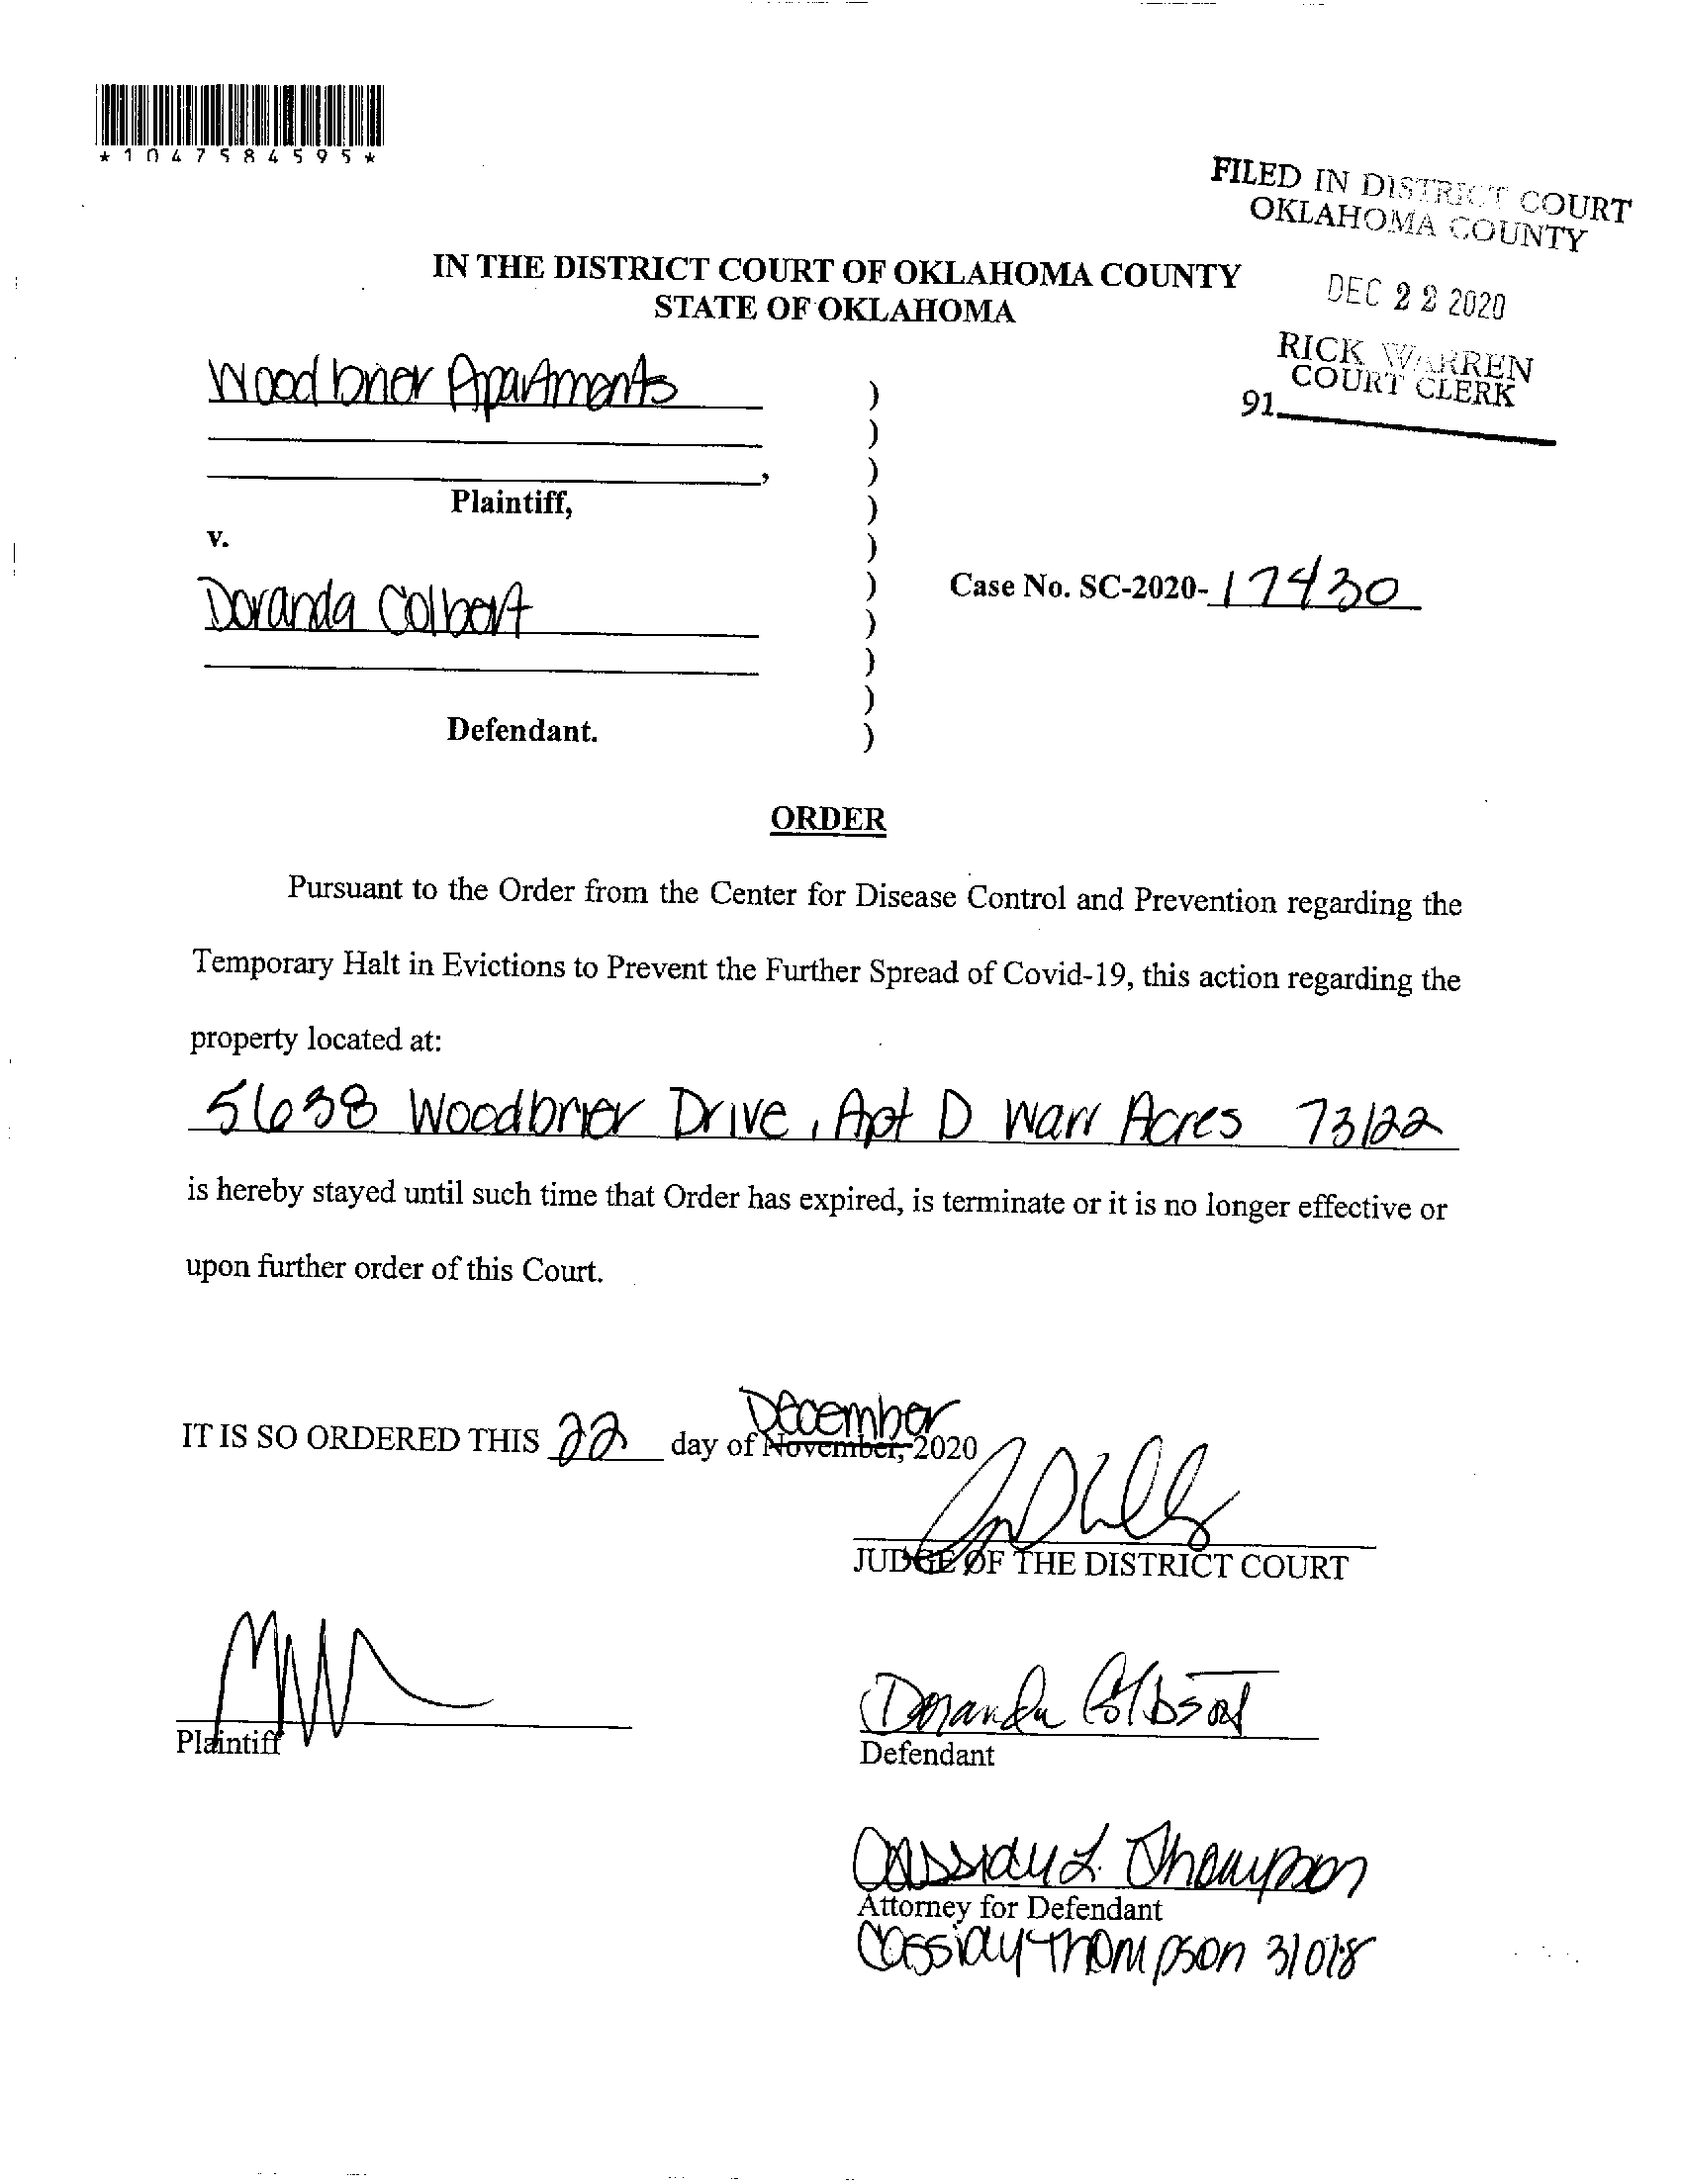 *1047584595*
FILED IN DISTRICT COURT
OKLAHOMA COUNTY
DEC 22 2020
RICK WARREN
COURT CLERK
91
IN THE DISTRICT COURT OF OKLAHOMA COUNTY
STATE OF OKLAHOMA
Woodbrier Apartments
,
Plaintiff,
v.
Doranda Colbert
Case No. SC-2020-17430
Defendant.
ORDER
Pursuant to the Order from the Center for Disease Control and Prevention regarding the
Temporary Halt in Evictions to Prevent the Further Spread of Covid-19, this action regarding the
property located at:
5638 Woodbrier Drive, Apt D Warr Acres 73122
is hereby stayed until such time that Order has expired, is terminate or it is no longer effective or
upon further order of this Court.
IT IS SO ORDERED THIS 22 day of November, December 2020
JUDGE OF THE DISTRICT COURT
Plaintiff
Doranda Colbert
Defendant
Cassidy L. Thompson
Attorney for Defendant
Cassidy Thompson 31018